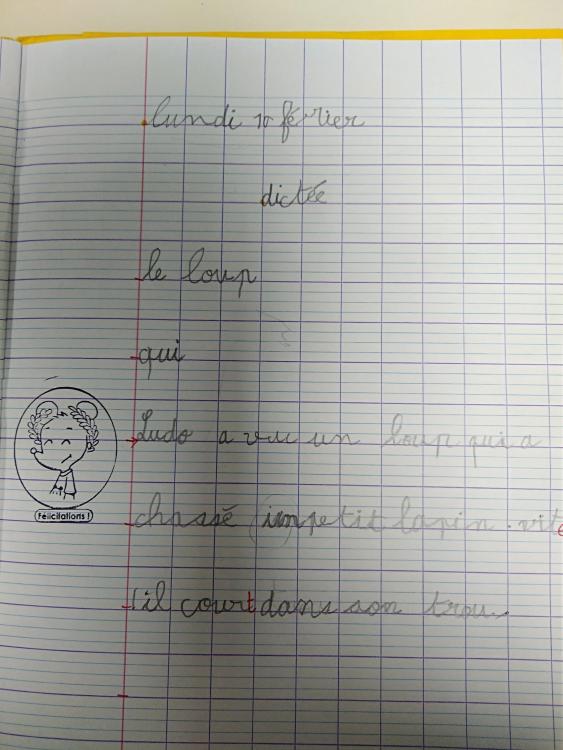 lundi 10 février
dictée
le loup
qui
Ludo a vu un loup qui a
chassé un petit lapin. vite
il court dans son trou.
Félicitations !